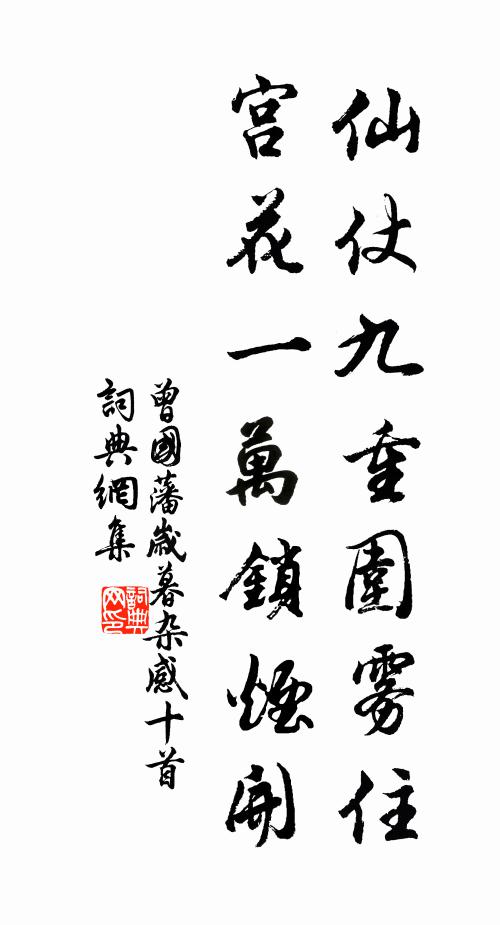 仙仗九重圍雾住
宮花一萬鎖煙開
曾國藩歲暮杂感十首
詞典網集
詞典
网印